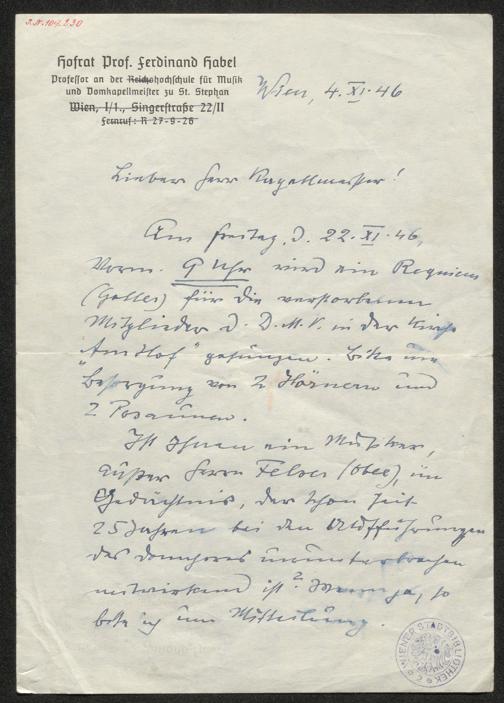 J.N. 109.230
Hofrat Prof. Ferdinand Habel
Professor an der Reichshochschule für Musik
und Domkapellmeister zu St. Stephan
Wien, I/1., Singerstraße 22/II
Fernruf: R 27-9-26
Wien, 4. XI. 46
Lieber Herr Kapellmeister!
Am Freitag, d. 22. XI. 46,
Vorm. 9 Uhr wird ein Requiem
für die verstorbenen
Mitglieder d. D. M. V. in der Kirche
"Am Hof" gesungen. Bitte um
Besorgung von 2 Hörnern und
2 Posaunen.
Ist Ihnen ein Musiker,
außer Herrn (Oboe), im
Gedächtnis, der schon seit
25 Jahren bei den Aufführungen
des Domchores ununterbrochen
mitwirkend ist? Wenn ja, so
bitte ich um Mitteilung.
WIENER STADTBIBLIOTHEK